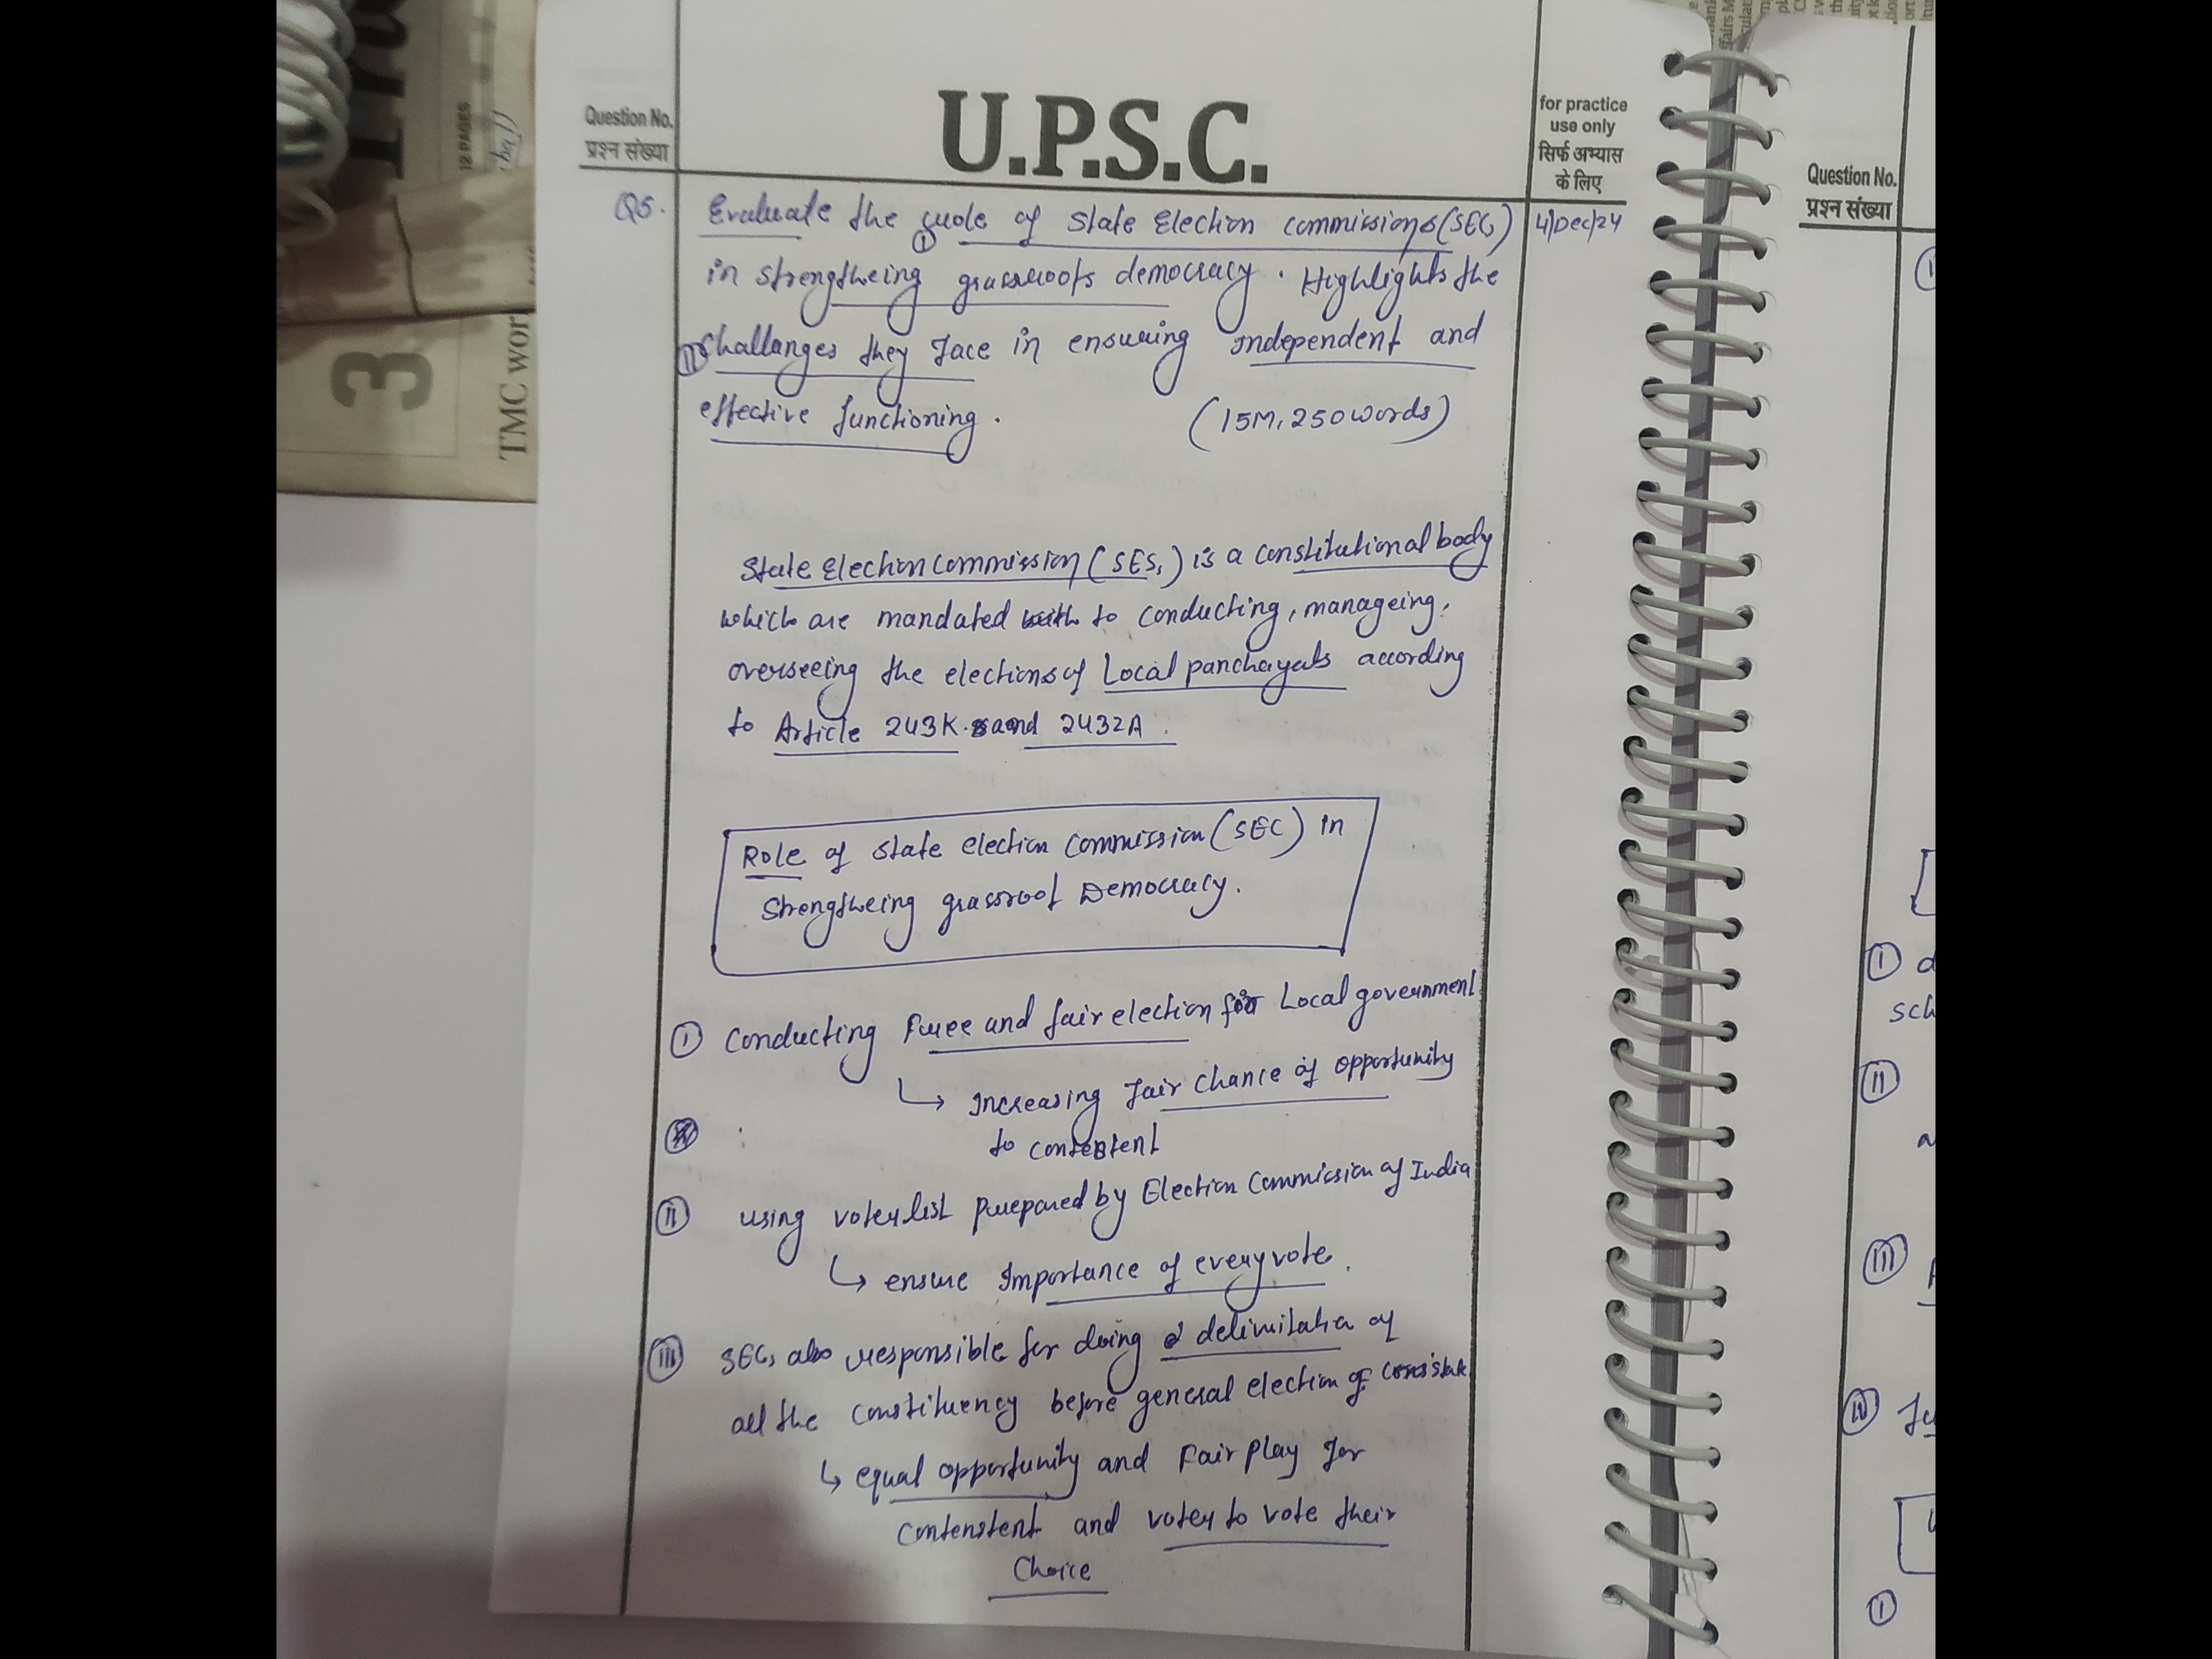 U.P.S.C.
Question No.
प्रश्न संख्या
for practice
use only
सिर्फ अभ्यास
के लिए
12 PAGES
3
TMC wor
Q5. Evaluate the role of State Election commissions (SECs) 4/Dec/24
in strengtheing grassroots democracy. Highlights the
Challanges they face in ensuring independent and
effective functioning. (15M, 250 words)
State Election Commission (SESs) is a constitutional body
which are mandated with to conducting, manageing,
overseeing the elections of Local panchayats according
to Article 243K and 243ZA.
Role of State election Commission (SEC) in
Strengtheing grassroot Democracy.
(I) Conducting Free and fair election for Local government
↳ Increasing fair chance of opportunity
to contestent
(II) using voter list prepared by Election Commission of India
↳ ensure Importance of every vote.
(III) SECs also responsible for doing delimitation of
all the constituency before general election of
↳ equal opportunity and Fair play for
contenstent and voter to vote their
Choice
Question No.
प्रश्न संख्या
(I)
sch
(II)
(III)
(IV)
(I)